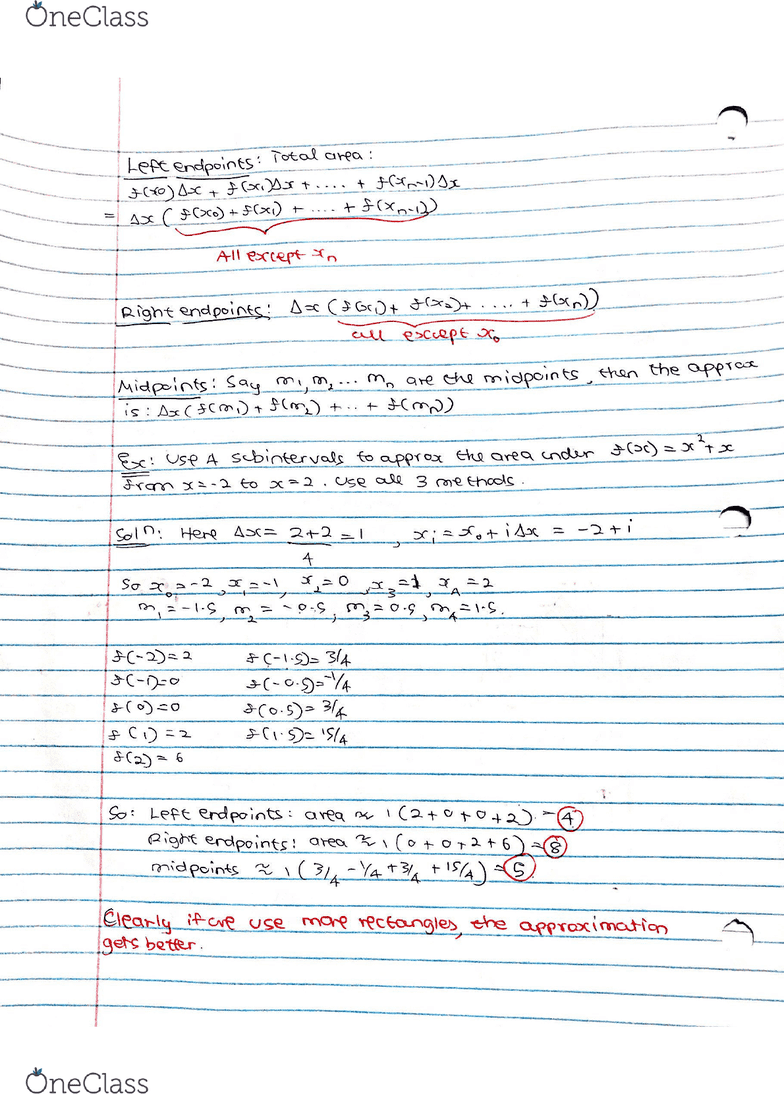 OneClass
Left endpoints: Total area:
f(x0)Δx + f(x1)Δx + .... + f(xn-1)Δx
= Δx ( f(x0) + f(x1) + .... + f(xn-1))
All except xn
Right endpoints: Δx (f(x1) + f(x2) + .... + f(xn))
all except x0
Midpoints: Say m1, m2 ... mn are the midpoints, then the approx
is: Δx (f(m1) + f(m2) + .. + f(mn))
Ex: Use 4 subintervals to approx the area under f(x) = x²+x
from x=-2 to x=2. Use all 3 methods.
Solⁿ: Here Δx = 2+2/4 = 1 , xi = x0 + iΔx = -2+i
So x0 = -2, x1 = -1, x2 = 0, x3 = 1, x4 = 2
m1 = -1.5, m2 = -0.5, m3 = 0.5, m4 = 1.5.
f(-2)=2 f(-1.5)= 3/4
f(-1)=0 f(-0.5)= -1/4
f(0)=0 f(0.5)= 3/4
f(1)=2 f(1.5)= 15/4
f(2)=6
So: Left endpoints: area ≈ 1(2+0+0+2) = 4
Right endpoints: area ≈ 1(0+0+2+6) = 8
midpoints ≈ 1(3/4 - 1/4 + 3/4 + 15/4) = 5
Clearly if we use more rectangles, the approximation
gets better.
OneClass